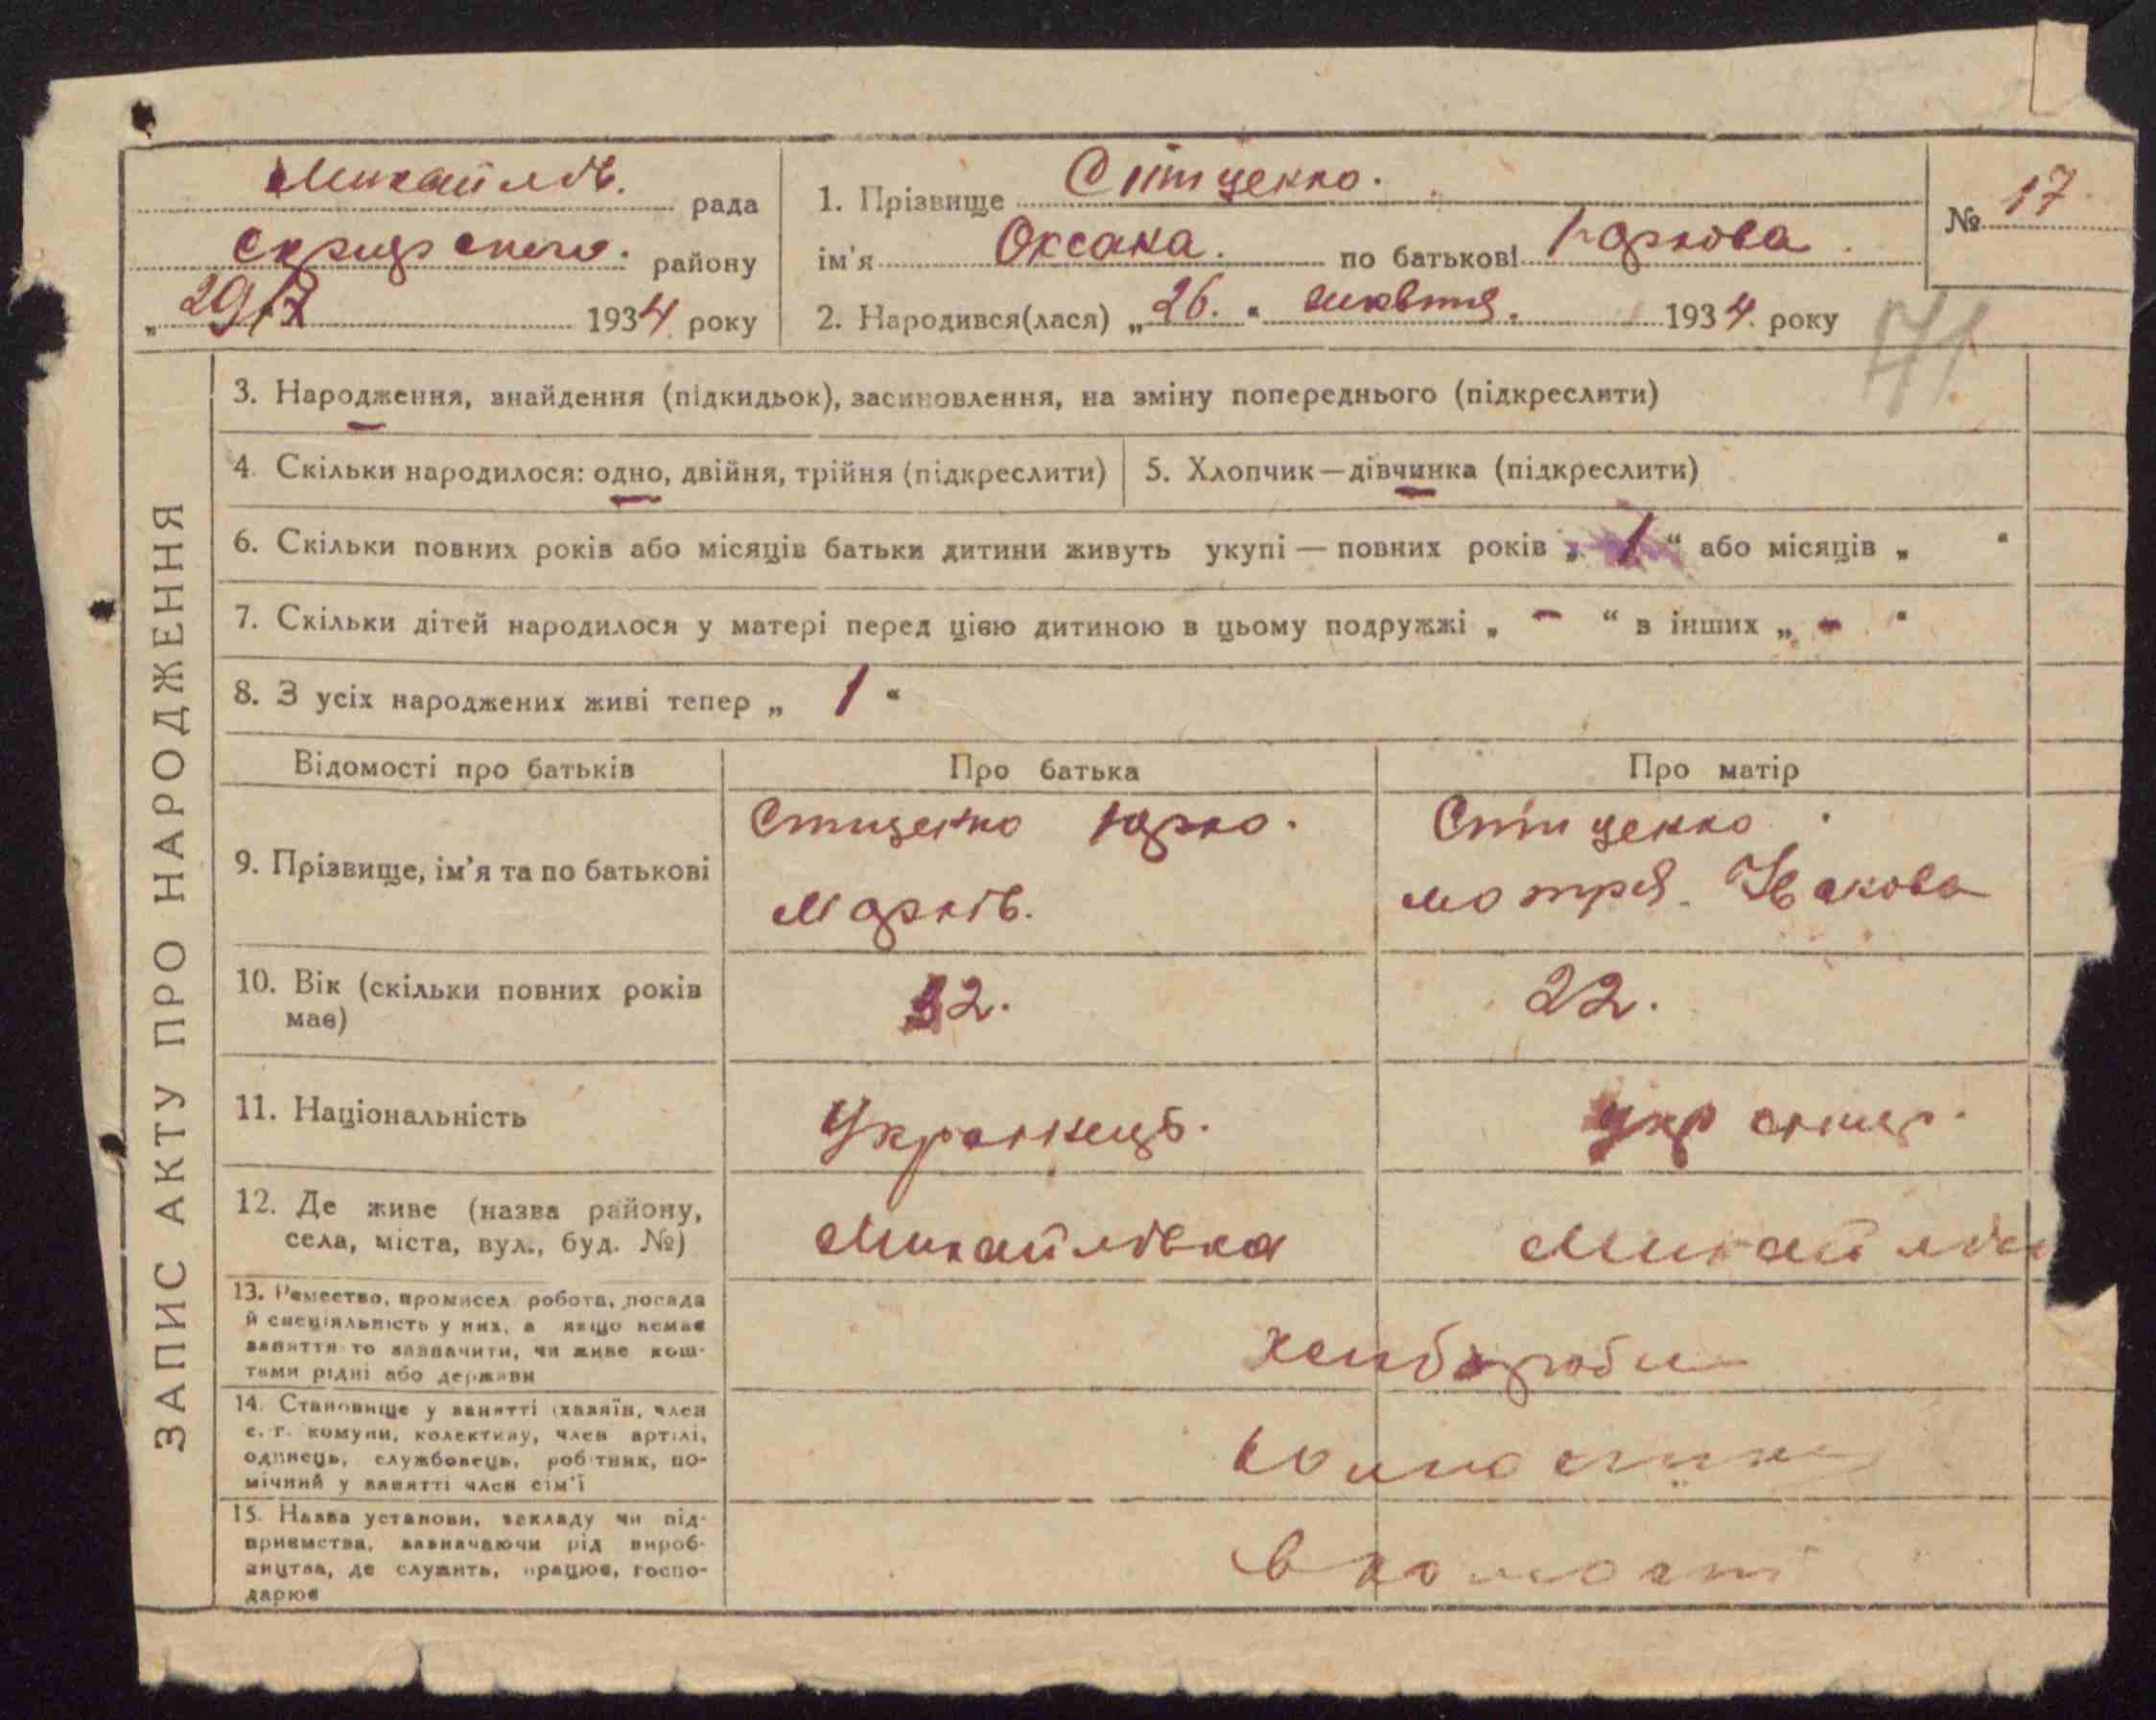 Михайлів. рада
району
"29/X 1934 року
1. Прізвище Стіценко.
ім'я Оксана. по батькові Юркова.
2. Народився(лася) „26." жовтня. 1934. року
№ 17
71
ЗАПИС АКТУ ПРО НАРОДЖЕННЯ
3. Народження, знайдення (підкидьок), засиновлення, на зміну попереднього (підкреслити)
4. Скільки народилося: одно, двійня, трійня (підкреслити)
5. Хлопчик—дівчинка (підкреслити)
6. Скільки повних років або місяців батьки дитини живуть укупі — повних років „ 1 “ або місяців „ “
7. Скільки дітей народилося у матері перед цією дитиною в цьому подружжі „ - “ в інших „ - “
8. З усіх народжених живі тепер „ 1 “
Відомості про батьків
Про батька
Про матір
9. Прізвище, ім'я та по батькові
Стиценко Юрко.
Марків.
Стіценко.
мотря. Івакова
10. Вік (скільки повних років
має)
32.
22.
11. Національність
Українець.
12. Де живе (назва району,
села, міста, вул., буд. №)
Михайлівка
Михайлівк
13. Ремество, промисел робота, посада
й спеціяльність у них, а якщо немає
заняття то зазначити, чи живе кош-
тами рідні або держави
хлібороби
14. Становище у занятті (хазяїн, член
с. г. комуни, колективу, член артілі,
одинець, службовець, робітник, по-
мічний у занятті член сім'ї
15. Назва установи, закладу чи під-
приємства, зазначаючи рід вироб-
ництва, де служить, працює, госпо-
дарює
в колгоспі